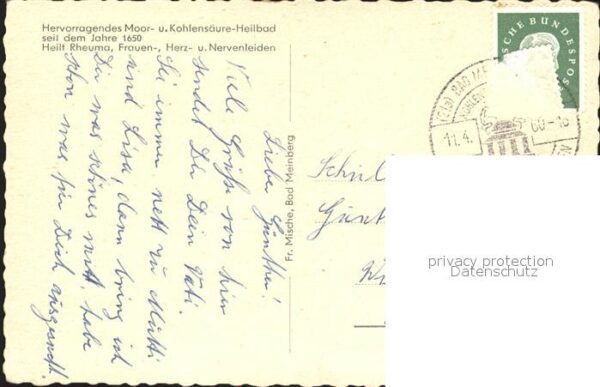 Hervorragendes Moor- u. Kohlensäure-Heilbad
seit dem Jahre 1650
Heilt Rheuma, Frauen-, Herz- u. Nervenleiden
Lieber Günther!
Viele Grüße von hier
sendet Dir Dein Vati.
Sei immer nett zu Mutti
und Lisa, dann bring ich
Dir was schönes mit, habe
schon was für Dich ausgesucht.
Fr. Mische, Bad Meinberg
SCHE BUNDESPOS
(21a) BAD ME
11.4.
60-18
Günt
privacy protection
Datenschutz